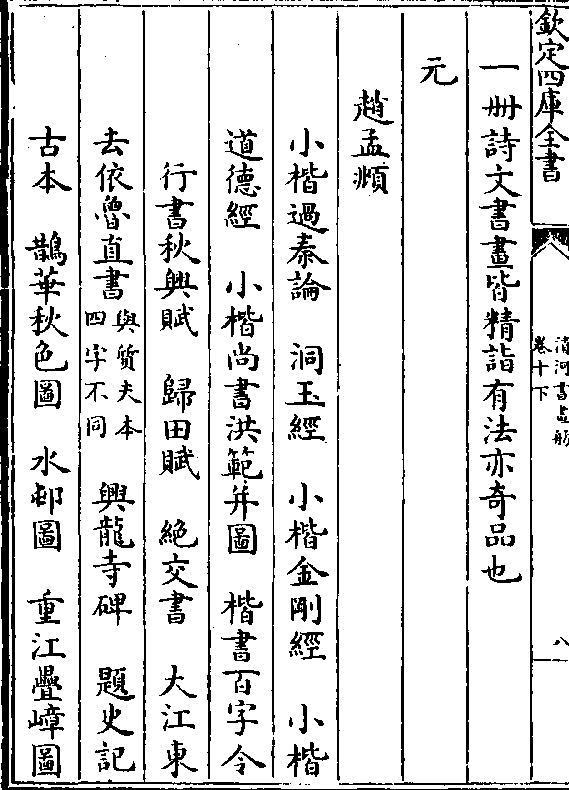 欽定四庫全書
清河書畫舫
卷十下
八
一冊詩文書畫皆精詣有法亦奇品也
元
趙孟頫
小楷過秦論 洞玉經 小楷金剛經 小楷
道德經 小楷尚書洪範并圖 楷書百字令
行書秋興賦 歸田賦 絶交書 大江東
去依魯直書與質夫本四字不同 興龍寺碑 題史記
古本 鵲華秋色圖 水邨圖 重江疊嶂圖